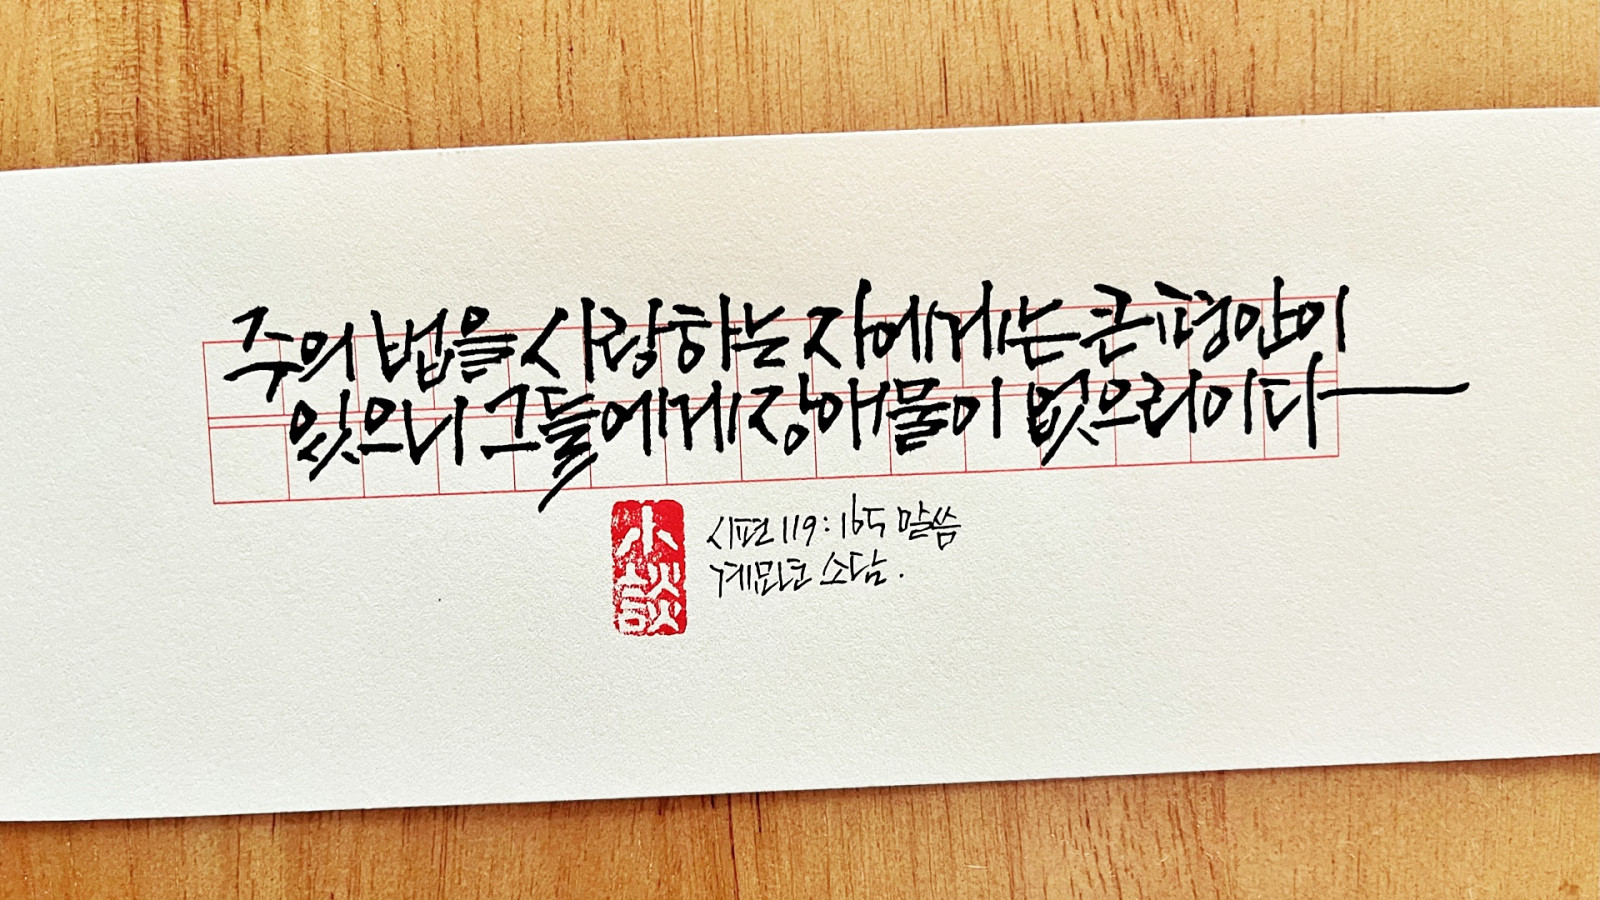 주의 법을 사랑하는 자에게는 큰 평안이
있으니 그들에게 장애물이 없으리이다
小談
시편 119:165 말씀
계묘년 소담.